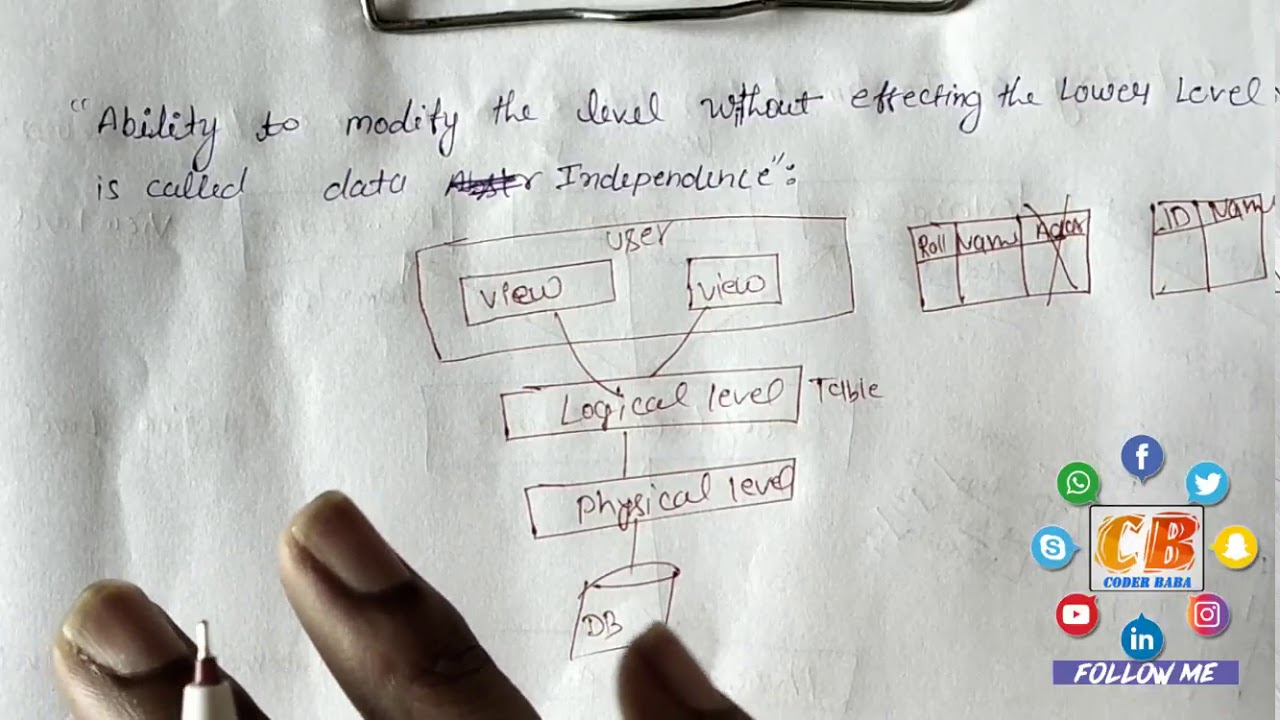 "Ability to modify the level without effecting the Lower Level
is called data Independence":
user
view view
Roll Name
ID Nam
Logical level Table
Physical level
DB
CB
CODER BABA
FOLLOW ME